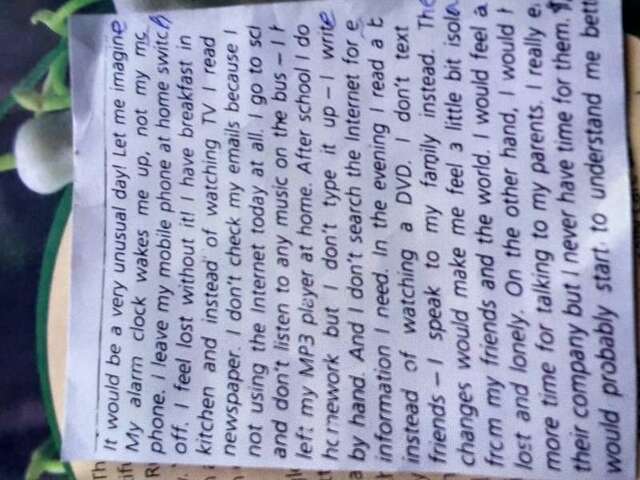 It would be a very unusual day! Let me imagine
My alarm clock wakes me up, not my mo
phone. I leave my mobile phone at home switch
off. I feel lost without it! I have breakfast in
kitchen and instead of watching TV I read
newspaper. I don't check my emails because I
not using the Internet today at all. I go to scl
and don't listen to any music on the bus – I h
left my MP3 player at home. After school I do
homework but I don't type it up – I write
by hand. And I don't search the Internet for
information I need. In the evening I read a
instead of watching a DVD. I don't text
friends – I speak to my family instead. The
changes would make me feel a little bit isola
from my friends and the world. I would feel a
lost and lonely. On the other hand, I would h
more time for talking to my parents. I really e
their company but I never have time for them.
would probably start to understand me bett